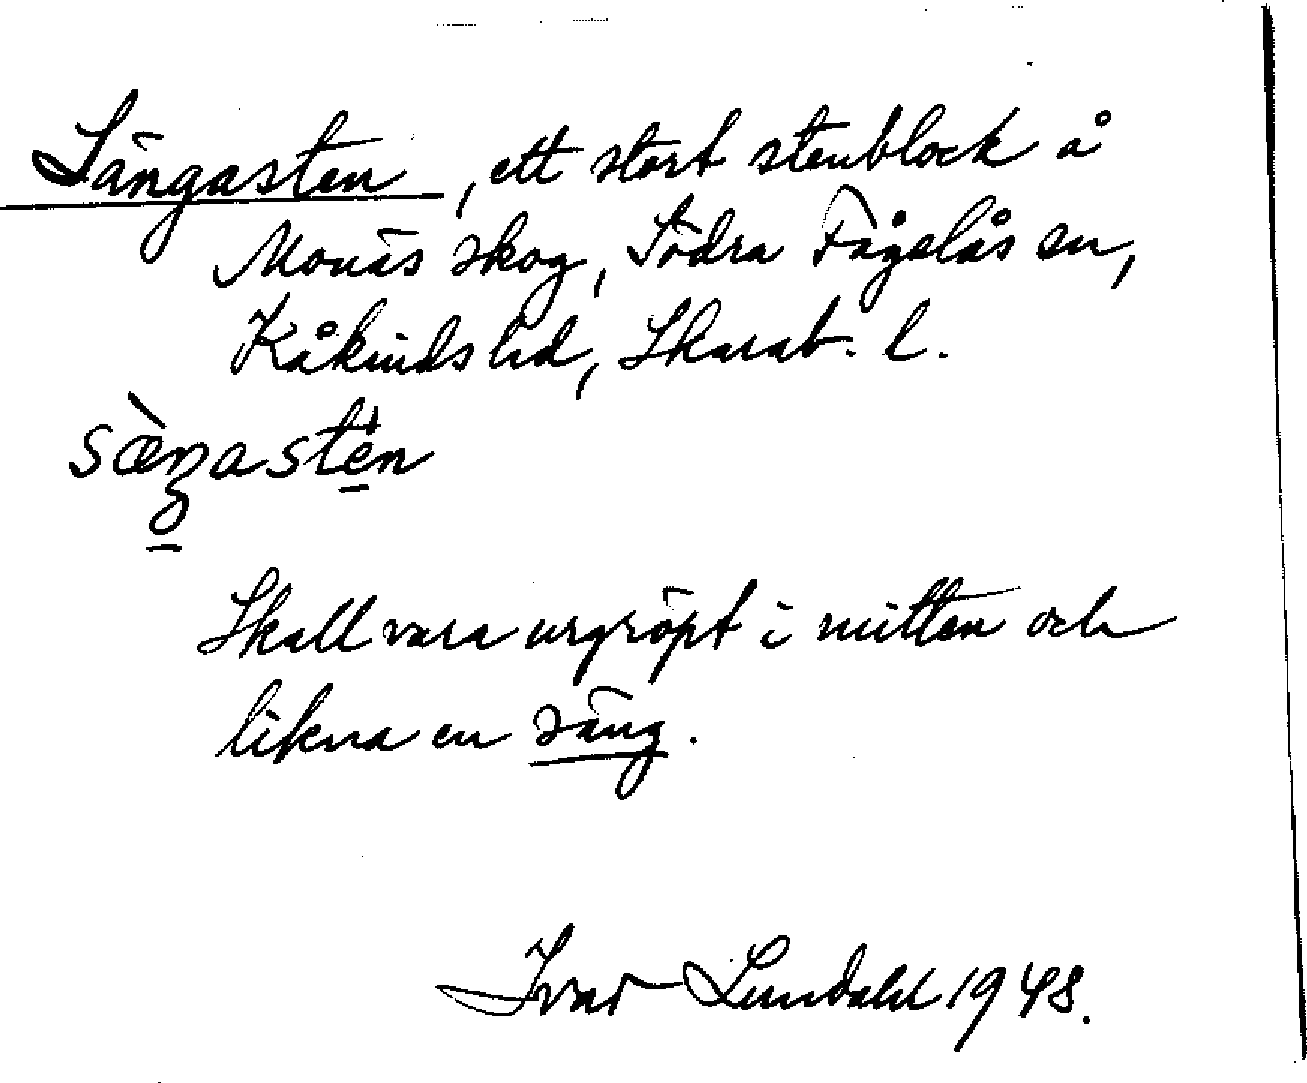 Sängasten, ett stort stenblock å
Monäs skog, Södra Fågelås sn,
Kåkinds hd, Skarab. l.
Skall vara urgröpt i mitten och
likna en säng.
Ivar Lundahl 1948.